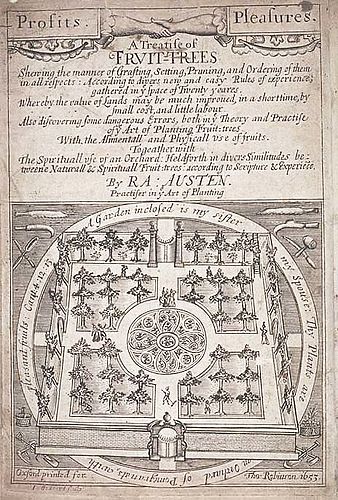 Profits. Pleasures.
A Treatise of
FRVIT-TREES
Shewing the manner of Grafting, Setting, Pruning, and Ordering of them
in all respects: According to divers new and easy Rules of experience;
gathered in yͤ space of Twenty yeares.
Whereby the value of Lands may be much improued, in a shorttime, by
small cost, and little labour.
Also discovering some dangerous Errors, both in yͤ Theory and Practise
of yͤ Art of Planting Fruit-trees
With the Alimentall and Physicall Vse of fruits.
Togeather with
The Spirituall vse of an Orchard: Held forth in divers Similitudes be-
tweene Naturall & Spirituall Fruit-trees: according to Scripture & Experiēce.
By RA: AUSTEN.
Practiser in yͤ Art of Planting
A Garden inclosed is my sister
my Spouse: Thy Plants are
an Orchard of Pomgranats, with
pleasant fruits: Cant 4.12.13
Oxford printed for
Tho: Robinson 1653